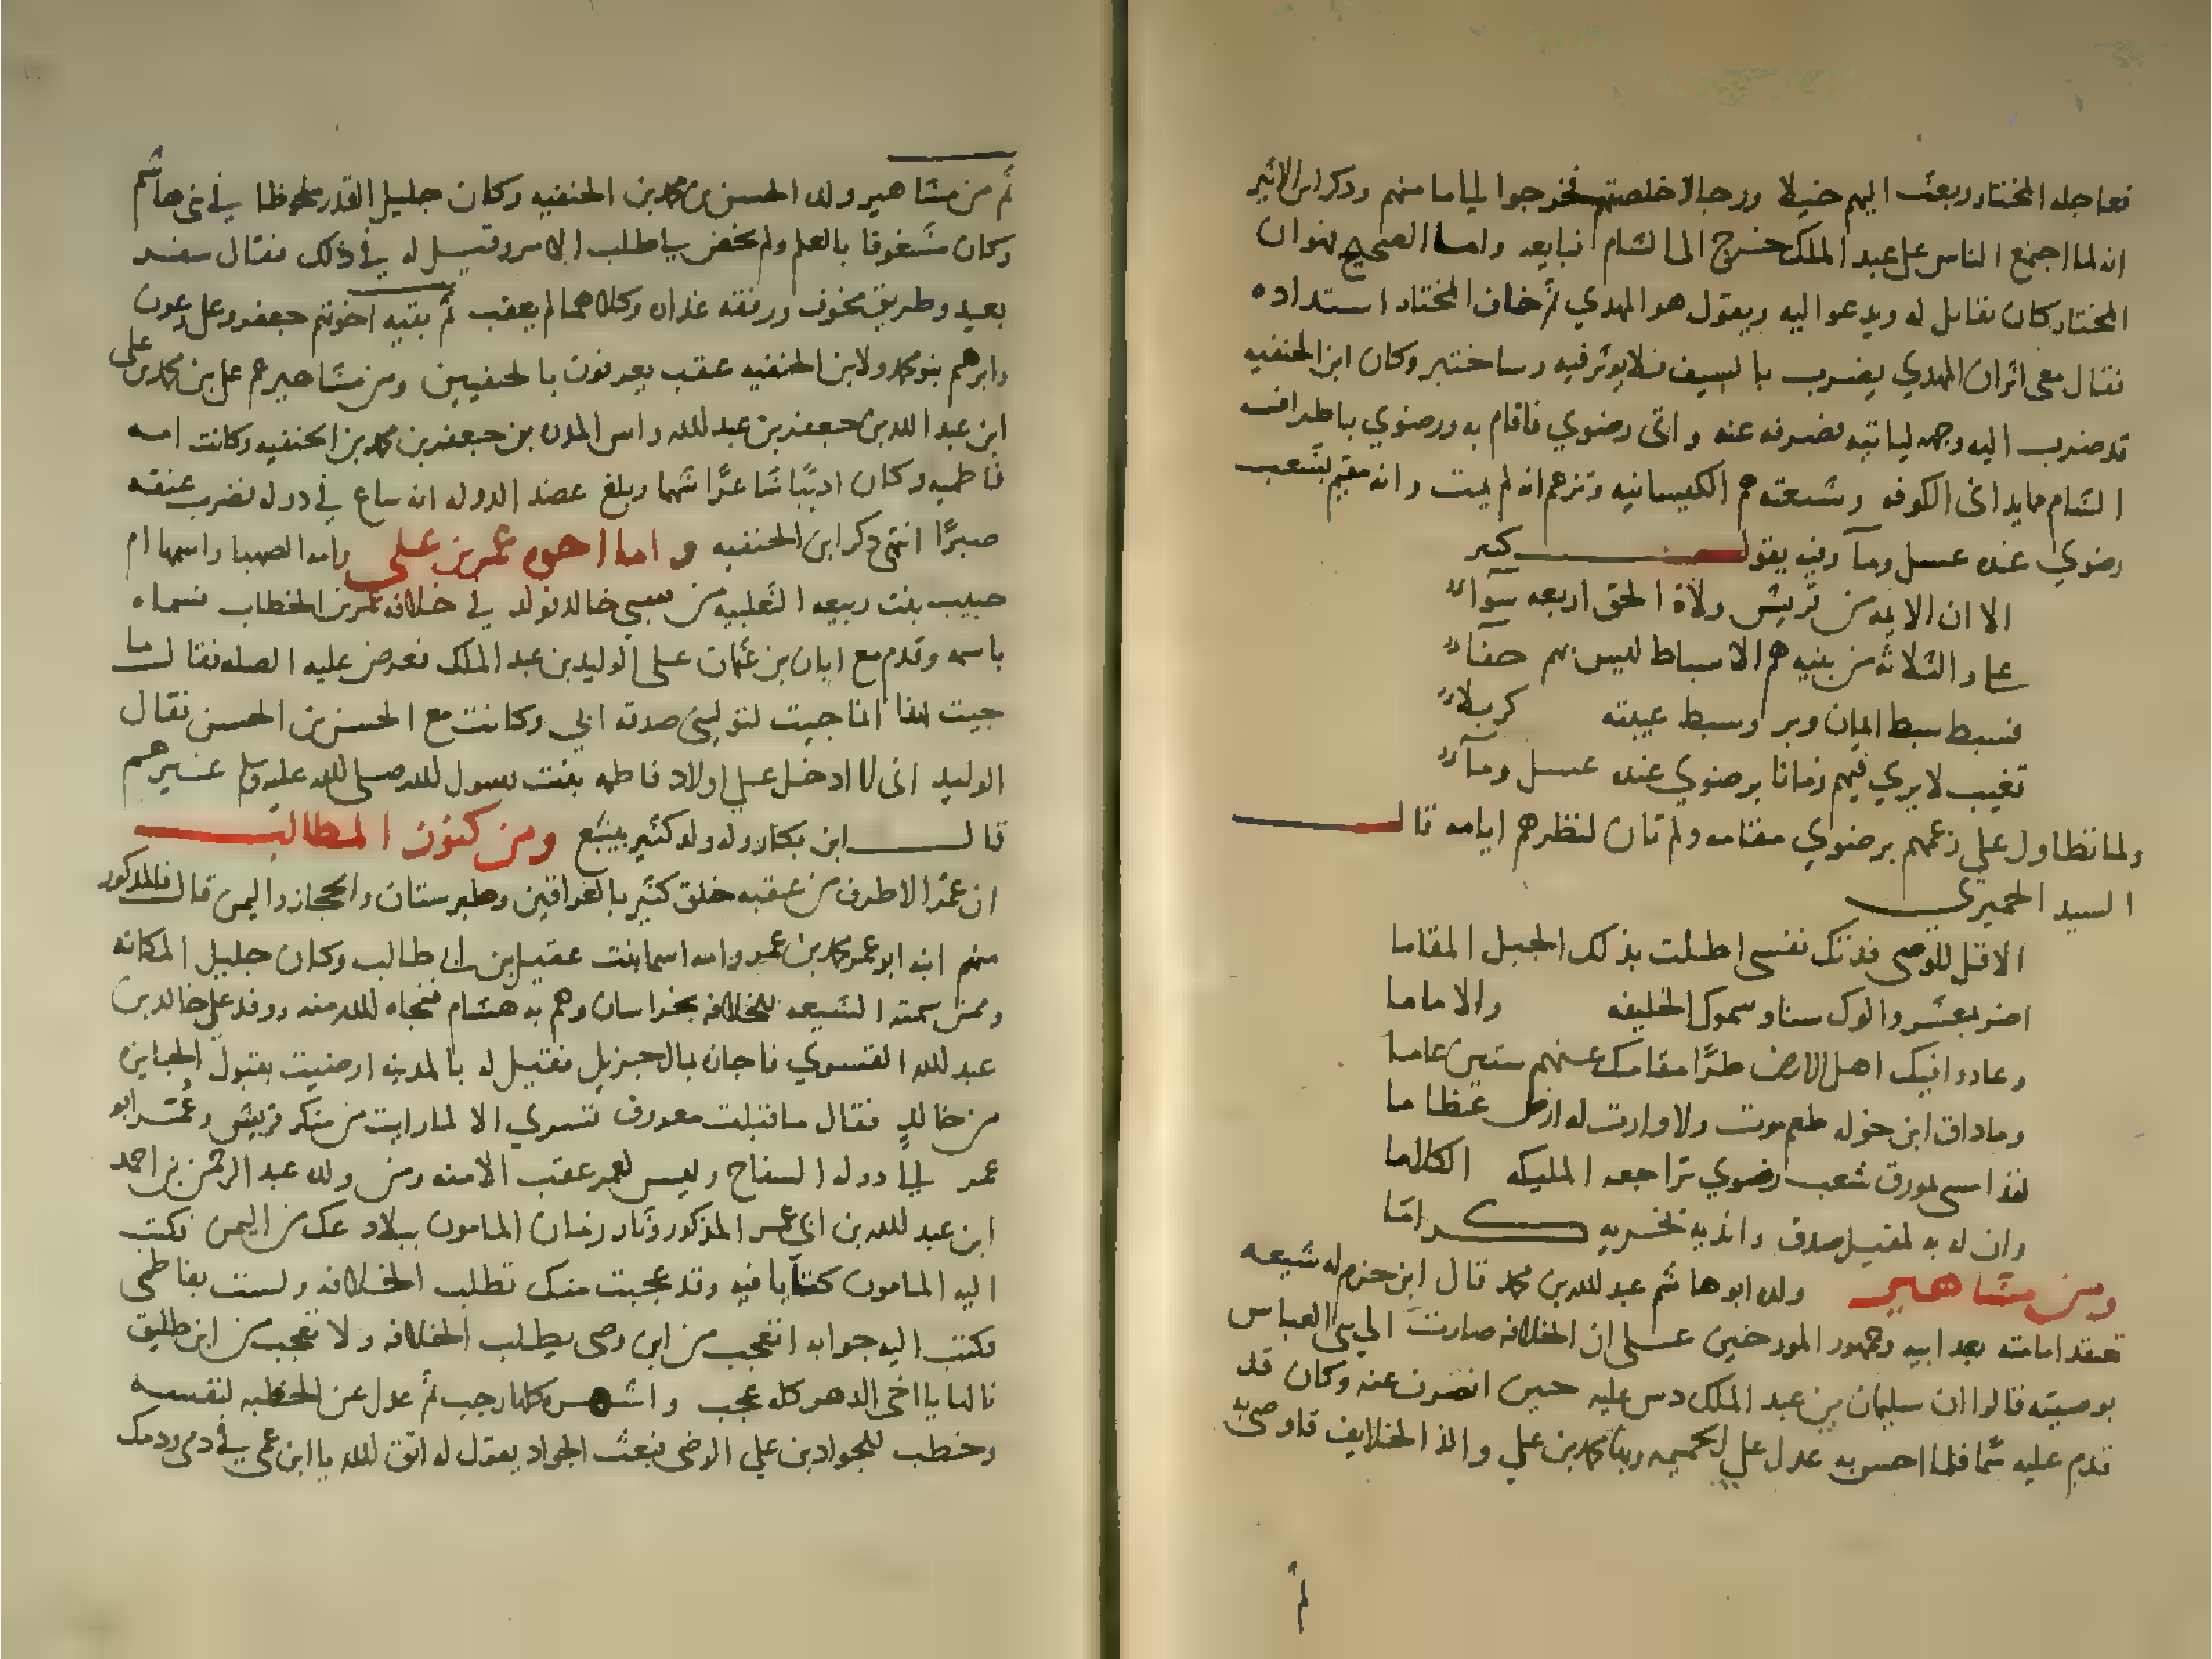 فعاجله المختار وبعث اليهم خيلا ورجالا خلصتهم فخرجوا ليا ما منهم وذكر ابن الاثير
انه لما اجتمع الناس على عبد الملك خرج الى الشام فبايعه واما الصحيح فهو ان
المختار كان يقاتل له ويدعوا اليه ويقول هو المهدي ثم خاف المختار استداده
فقال معى اثران المهدي يضرب بالسيف فلا يوثر فيه وساختبر وكان ابن الحنفيه
قد ضرب اليه وجهه لياتيه فصرفه عنه واتى رضوي فاقام به ورضوي باطراف
الشام مايد اني الكوفه وشيعته هم الكيسانيه وتزعم انه لم يمت وانه مقيم بشعب
رضوي عنده عسل ومآ وفيه يقول كثير
الا ان الايمه من قريش ولاة الحق اربعه سوآء
على والثلاثه من بنيه هم الاسباط ليس بهم خفآء
فسبط سبط ايمان وبر وسبط غيبته كربلاء
تغيب لا يري فيهم زمانا برضوي عنده عسل ومآء
ولما تطاول على زعمهم برضوي مقامه ولم تان لنظرهم ايامه قال
السيد الحميري
الا قل للوصى فدتك نفسى اطلت بذلك الجبل المقاما
اضر بمعشر والوك منا وسموك الخليفه والاماما
وعادوا فيك اهل الارض طرًا مقامك عنهم ستين عاما
وماذاق ابن خوله طعم موت ولا وارت له ارض عظاما
لقد امسى بمورق شعب رضوي تراجعه المليكه الكلاما
وان له به لمقيل صدق واندية تخريه كراما
ومن مشاهير ولده ابو هاشم عبد الله بن محمد قال ابن حزم له شيعه
تعتقد امامته بعد ابيه وجمهور المورخين على ان الخلافه صارت الى بنى العباس
بوصيته قالوا ان سليمان بن عبد الملك دس عليه حين انصرف عنه وكان قد
قدم عليه سما فلما احس به عدل على الحميمه وبها محمد بن على والد الخلايف فاوصى به
ثم
ثم من مشاهير ولده الحسن بن محمد بن الحنفيه وكان جليل القدر ملحوظا في بنى هاشم
وكان مشغوفا بالعلم ولم يخض باطلب الامر وقيل له في ذلك فقال سفر
بعيد وطريق مخوف ورفقه غداره وكلاهما لم يعقب ثم بقيه اخوتهم جعفر وعلى وعون
وابرهم بنو محمد ولابن الحنفيه عقب يعرفون بالحنفيين ومن مشاهيرهم على بن محمد بن على
ابن عبد الله بن جعفر بن عبد الله راس المدن بن جعفر بن محمد بن الحنفيه وكانت امه
فاطميه وكان اديبًا شاعرًا شهما وبلغ عضد الدوله انه ساع في دوله فضرب عنقه
صبرًا انتهى ذكر ابن الحنفيه واما اخوه عمر بن على وامه الصهبا واسمها ام
حبيب بنت ربيعه الثعلبيه من سبى خالد فولد في خلافة عمر بن الخطاب فسماه
باسمه وقدم مع ابان بن عثمان على الوليد بن عبد الملك فعرض عليه الصله فقال ما
جيت لهذا انما جيت لتوليني صدقه ابي وكانت مع الحسن بن الحسن فقال
الوليد انى لا ادخل على اولاد فاطمه بنت رسول الله صلى الله عليه وسلم غيرهم
قال ابن بكار وله ولد كثير بينبع ومن كنوز المطالب
ان عمر الاطرف من عقبه خلق كثير بالعراقين وطبرستان والحجاز واليمن قال فالمذكور
منهم ابنه ابو عمر محمد بن عمر وامه اسما بنت عقيل بن ابى طالب وكان جليل المكانه
وممن سمته الشيعه للخلافه بخراسان وهم به هشام فنجاه الله منه ووفد على خالد بن
عبد الله القسري فاجازه بمال جزيل فقيل له بالمدينه ارضيت بقبول الجايزه
من خالدٍ فقال ما قبلت معروف قسري الا لما رايت من منكر قريش وعُمّر ابو
عمر الى دوله السفاح وليس لعمر عقب الا منه ومن ولده عبد الرحمن بن احمد
ابن عبد الله بن ابى عمر المذكور وثار زمان المامون ببلاد عك من اليمن فكتب
اليه المامون كتابا فيه وقد عجبت منك تطلب الخلافه ولست بفاطمى
فكتب اليه جوابه اتعجب من ابن وصى يطلب الخلافه ولا تعجب من ابن طليق
نالها يا اخى الدهر كله عجب واشهره كلها رجب ثم عدل عن الخطبه لنفسه
وخطب للجواد بن علي الرضى فبعث الجواد يقول له اتق الله يا ابن عمى في دمى ودمك